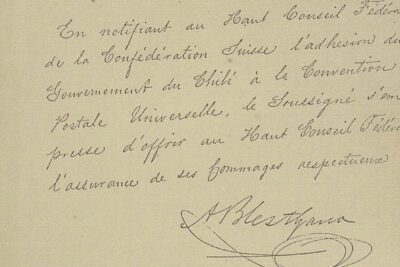 En notifiant au Haut Conseil Fédéra
de la Confédération Suisse l'adhésion du
Gouvernement du Chili à la Convention
Postale Universelle, le Soussigné s'em
presse d'offrir au Haut Conseil Fédéra
l'assurance de ses hommages respectueux
A Blest Gana